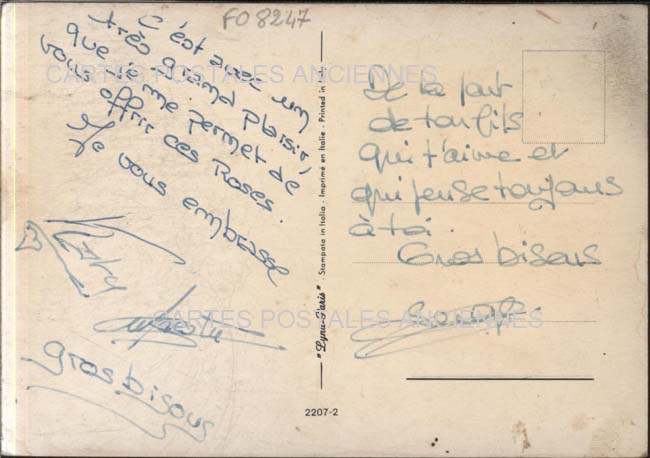 FO 8247
C'est avec un
très grand plaisir,
que je me permet de
vous offrir ces Roses
Je vous embrasse
gros bisous
CARTES POSTALES ANCIENNES
CARTES POSTALES ANCIENNES
"Lyna-Paris" - Stampato in Italia - Imprimé en Italie - Printed in Italy
2207-2
De la part
de ton fils
qui t'aime et
qui pense toujours
à toi.
Gros bisous